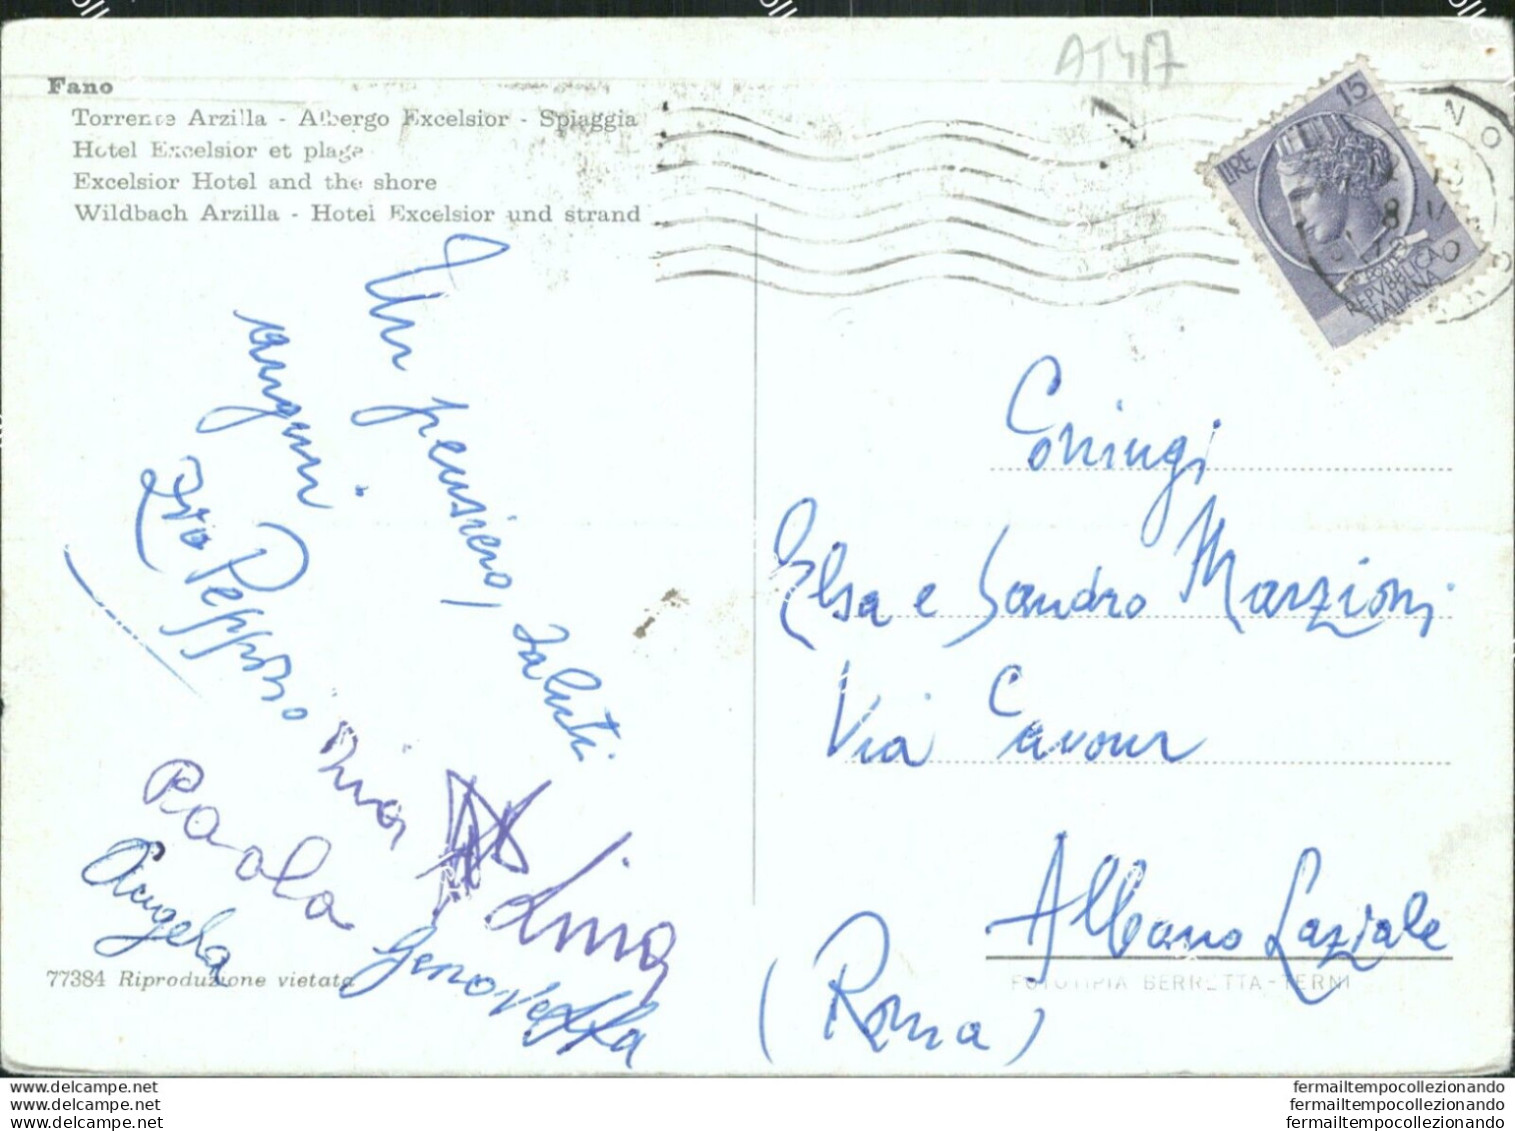 AT417
Fano
Torrente Arzilla - Albergo Excelsior - Spiaggia
Hotel Excelsior et plage
Excelsior Hotel and the shore
Wildbach Arzilla - Hotel Excelsior und strand
LIRE 15
REPVBBLICA
ITALIANA
Un pensiero, saluti
auguri
Zio Peppino
Lina
Paola
Angela
Genoveffa
Coniugi
Elsa e Sandro Marzioni
Via Cavour
Albano Laziale
(Roma)
77384 Riproduzione vietata
FOTOTIPIA BERRETTA - TERNI
www.delcampe.net
www.delcampe.net
www.delcampe.net
fermailtempocollezionando
fermailtempocollezionando
fermailtempocollezionando